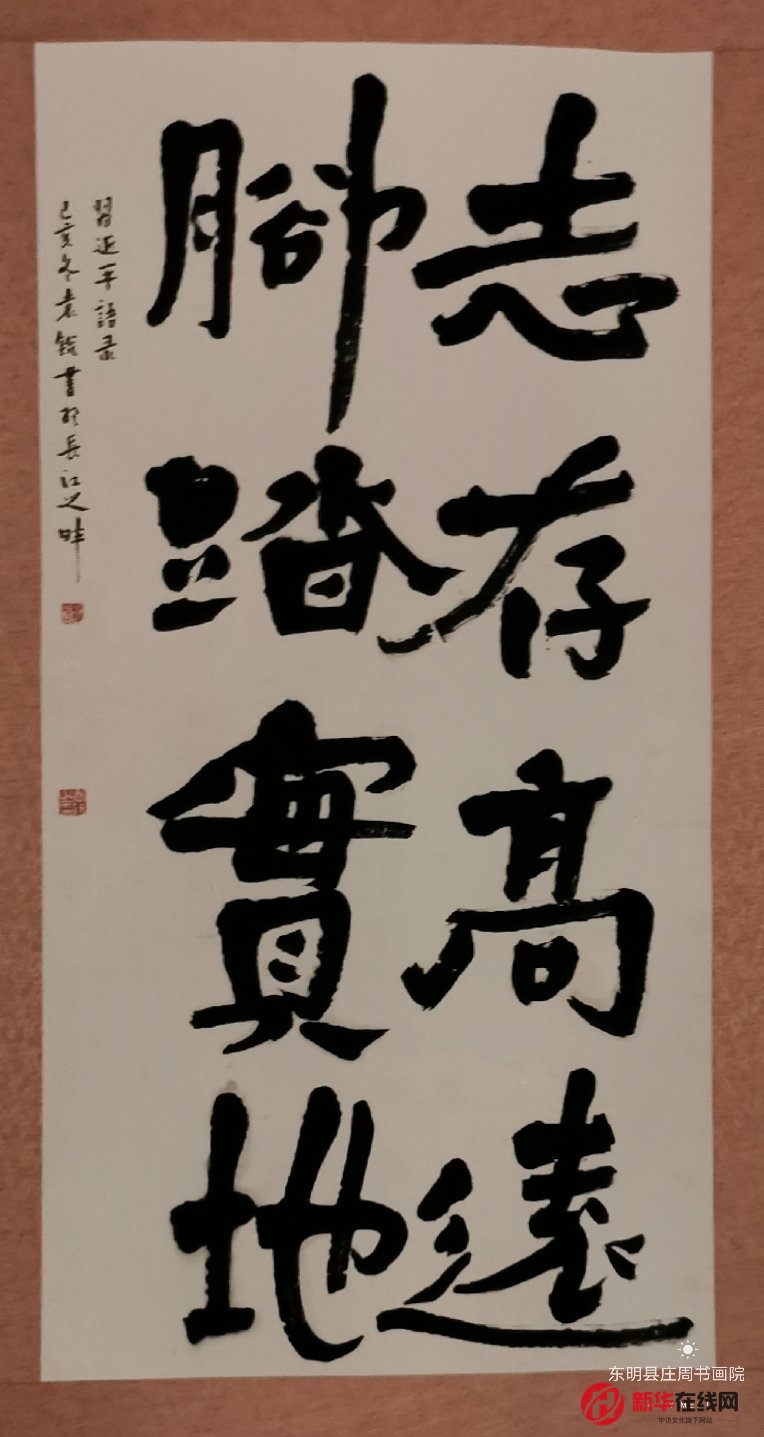 志存高遠
腳踏實地
習近平語录
己亥冬袁銳書於長江之畔
东明县庄周书画院
新华在线网
华访文化旗下网站